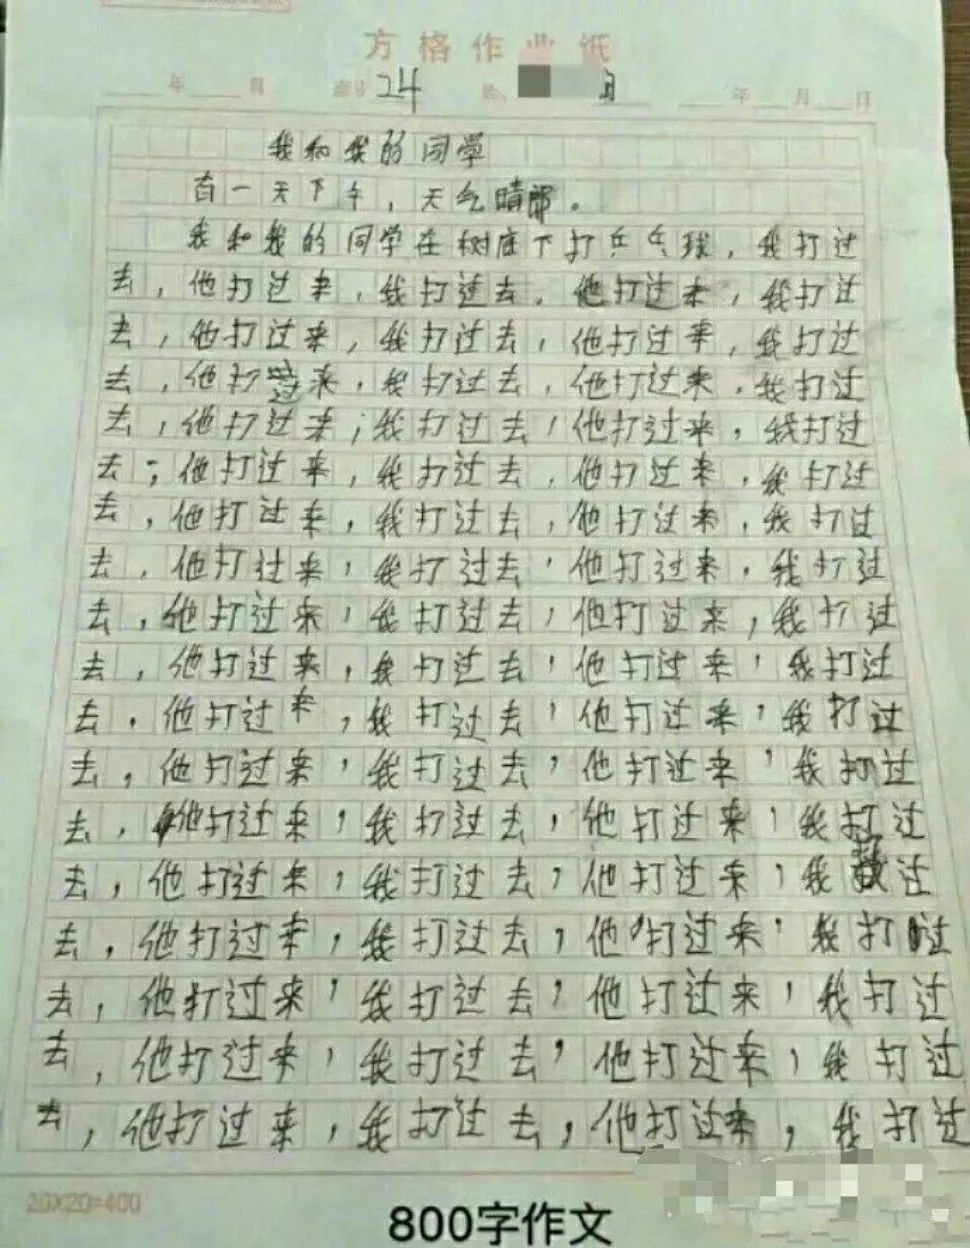 方格作业纸
年 24 年 月 日
我和我的同学
有一天下午，天气晴郎。
我和我的同学在树底下打乒乓球，我打过
去，他打过来，我打过去，他打过来，我打过
去，他打过来，我打过去，他打过来，我打过
去，他打过来，我打过去，他打过来，我打过
去，他打过来；我打过去，他打过来，我打过
去；他打过来，我打过去，他打过来，我打过
去，他打过来，我打过去，他打过来，我打过
去，他打过来，我打过去，他打过来，我打过
去，他打过来，我打过去，他打过来，我打过
去，他打过来，我打过去，他打过来，我打过
去，他打过来，我打过去，他打过来，我打过
去，他打过来，我打过去，他打过来，我打过
去，他打过来，我打过去，他打过来，我打过
去，他打过来，我打过去，他打过来，我过
去，他打过来，我打过去，他打过来，我打过
去，他打过来，我打过去，他打过来，我打过
去，他打过来，我打过去，他打过来，我打过
去，他打过来，我打过去，他打过来，我打过
20X20=400
800字作文